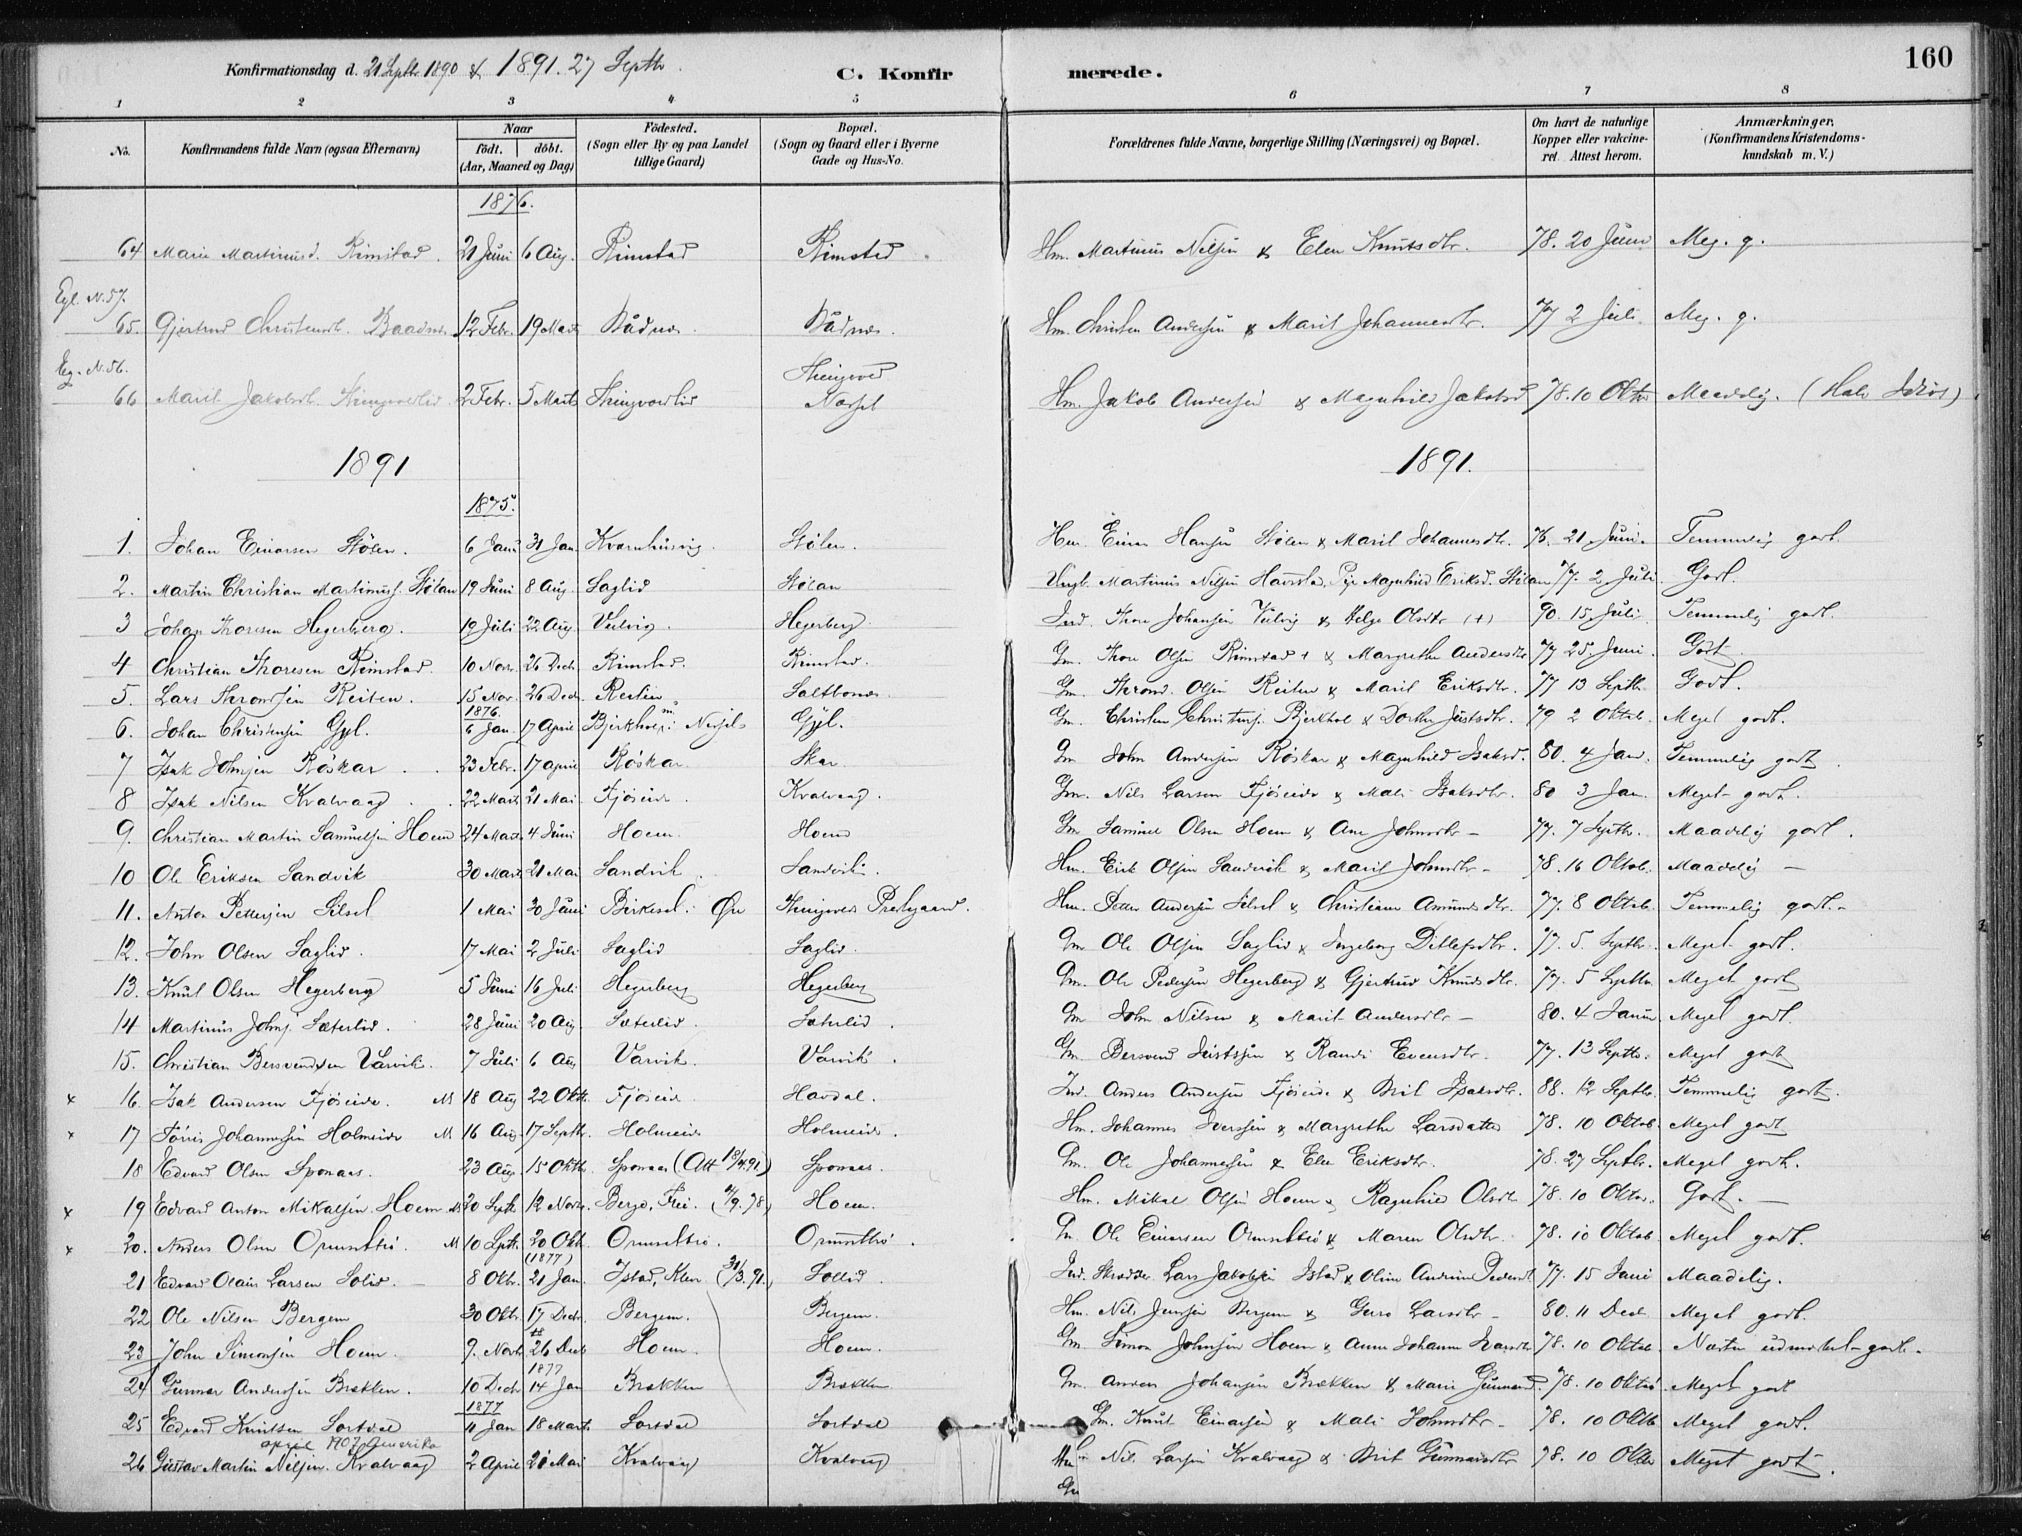 160
Konfirmationsdag d. 21 Septbr. 1890 & 1891. 27 Septbr.
C. Konfirmerede.
1 2 3 4 5 6 7 8
No. Konfirmandens fulde Navn (ogsaa Efternavn) Naar født. døbt. (Aar, Maaned og Dag) Fødested. (Sogn eller By og paa Landet tillige Gaard) Bopæl. (Sogn og Gaard eller i Byerne Gade og Hus-No. Forældrenes fulde Navne, borgerlige Stilling (Næringsvei) og Bopæl. Om havt de naturlige Kopper eller vakcineret. Attest herom. Anmærkninger. (Konfirmandens Kristendomskundskab m. V.)
1876.
64 Marie Martinusd. Rimstad. 21 Juni 6 Aug. Rimstad Rimstad Hm. Martinus Nilsen & Elen Knutsdtr. 78. 20 Juni Meg. g.
Egl. N. 57.
65. Gjertrud Christensdt. Baadnes 12 Febr. 19 Marts Bådnes Bådnes. Hm. Christen Andersen & Marit Johannesdtr. 77 2 Juli Meg. g.
Eg. N. 56.
66 Marit Jakobsdt. Thingvoldlid 2 Febr. 5 Marts Thingvordlid Thingvold Hm. Jakob Andersen & Magnhild Jakobsd 78. 10 Oktbr Maadelig.
1891 1891.
1875.
1. Johan Einarsen Stölen. 6 Jan 31 Jan. Kvarnhusvig. Stölen. Hm. Einar Hansen Stölen & Marit Johannesdtr. 76. 21. Juni. Temmelig godt.
2. Martin Christian Martinuss. Stölan 19 Juni 8 Aug. Saglid Stölan Ungk. Martinus Nilsen Pige Magnhild Eriksd. Stölan 77. 2 Juli Godt.
3 Johan Thoresen Hegerberg. 19 Juli 22 Aug. Veilvig. Hegerberg. Ind. Thore Johansen Veilvig & Helge Olsdtr (+) 90. 15. Juli. Temmelig godt.
4 Christian Thoresen Rimstad. 10 Novr. 26 Decbr. Rimstad. Rimstad. Gm. Thore Olsen Rimstad + & Margrethe Andersdtr 77 25. Juni. Godt.
5. Lars Throndsen Reiten. 15 Nov. 26 Decbr. Reiten Saltbones Gm. Thrond Olsen Reiten & Marit Eriksdtr. 77 13 Septbr. Godt.
1876.
6. Johan Christensen Gyl. 6 Jan. 17 April Gyl. Gm. Christen Christens. & Dorthe Justsdtr. 79 2 Oktob. Meget godt.
7 Isak Johnsen Röskar 23 Febr. 17 april Röskar Skar Gm John Andersen Röskar & Magnhild Isaksd. 80. 4 Jan. Temmelig godt.
8 Isak Nilsen Kvalvaag 22 Marts 21 Mai Fjöseide. Kvalvaag. Gm. Nils Larsen Fjöseide & Mali Isaksdtr. 80 3 Jan. Meget godt.
9. Christian Martin Samuelsen Hoem 24 Marts 4 Juni Hoem. Hoem Gm Samuel Olsen Hoem & Ane Johnsdtr - 77. 7 Septbr. Maadelig godt.
10 Ole Eriksen Sandvik 30 Marts 21 Mai Sandvik Sandvik. Hm. Erik Olsen Sandvik & Marit Johnsdtr - 78. 16 Oktob. Maadelig -
11. Anton Pettersen Silset 1 Mai 30 Juni Birkeset. Øre Thingvold Prestgaard. Hm. Petter Andersen Silset & Christiane Amundsdtr. 77. 8 Oktob. Temmelig godt.
12. John Olsen Saglid. 17 Mai 2 Juli Saglid Saglid. Gm. Ole Olsen Saglid & Ingeborg Ditlefsdtr. 77. 5. Septbr. Meget godt.
13. Knut Olsen Hegerberg 5 Juni 16 Juli Hegerberg Hegerberg Gm. Ole Pedersen Hegerberg & Gjertrud Knudsdtr. 77. 5 Septbr. Meget godt
14 Martinus Johns. Sæterlid. 28 Juni 20 Aug. Sæterlid. Sæterlid. Gm John Nilsen & Marit Andersdtr - 80. 4 Januar Meget godt.
15. Christian Bersvendsen Varvik. 7 Juli 6 Aug Varvik. Varvik. Gm. Bersvend Justsen & Randi Evensdtr. 77. 13 Septbr. Meget godt
x 16. Isak Andersen Fjöseide. M 18 Aug 22 Oktb. Fjöseid Havdal. Ind. Anders Andersen Fjöseide & Brit Isaksdtr. 88. 12 Septbr. Temmelig godt.
x 17 Törris Johannesen Holmeide M. 16 Aug. 17 Septbr. Holmeide Holmeide. Hm. Johannes Iversen & Margrethe Larsdatter 78. 10 Oktob. Meget godt
18 Edvard Olsen Sponaas. 23 Aug. 15 Oktb. Sponaas (Att 18/4 91) Sponaas. Gm. Ole Johannesen & Elen Eriksdtr. 78. 27 Septbr. Meget godt.
x 19 Edvard Anton Mikalsen Hoem M 20 Septb 12 Novbr. Bergo, Frei. Hoem. Hm. Mikal Olsen Hoem & Ragnhild Olsdtr 78. 10 Oktob. Godt. -
x 20. Anders Olsen Ormsettrö. M 10 Septb. 20 Okt. Ormsettrö. Ormsettrö. Gm Ole Einarsen Ormsettrö & Maren Olsdtr. 78. 10 Oktob Meget godt.
(1877)
21 Edvard Olaus Larsen Solid. - 8 Oktr. 21 Jan. Istad, Kleve (31/3. 91.) Sollid. Ind. Skrædder Lars Jakobsen Istad & Oline Andrine Pedersdt 77. 15 Juni Maadelig.
22 Ole Nilsen Bergem 30 Oktr. 17 Decbr. Bergem. Bergem. Hm. Nils Jensen Bergem & Guro Larsdtr - 80. 11 Decb. Meget godt.
23 John Simonsen Hoem. 9. Novbr 26 Decb Hoem. Hoem. Gm. Simon Johnsen Hoem & Anne Johanne Larsdtr 78. 10 Oktob. Næsten udmerket godt.
1877
24 Gunnar Andersen Brækken. 10 Decbr 14 Jan Brækken Brækken Gm. Anders Johansen Brækken & Marie Gunnarsd. 78. 10 Oktob. Meget godt
1877
25 Edvard Knutsen Sortdal 11 Jan 18 Marts Sortdal Sortdal Gm. Knut Einarsen & Mali Johnsdtr - 78. 10 Oktb Meget godt.
april 1907 Amerika
26. Gustav Martin Nilsen Kvalvaag 2 April 21 Mai Kvalvaag Kvalvaag Nils Larsen Kvalvaag & Brit Gunnarsdtr 78. 10 Oktbr Meget godt.
Gm